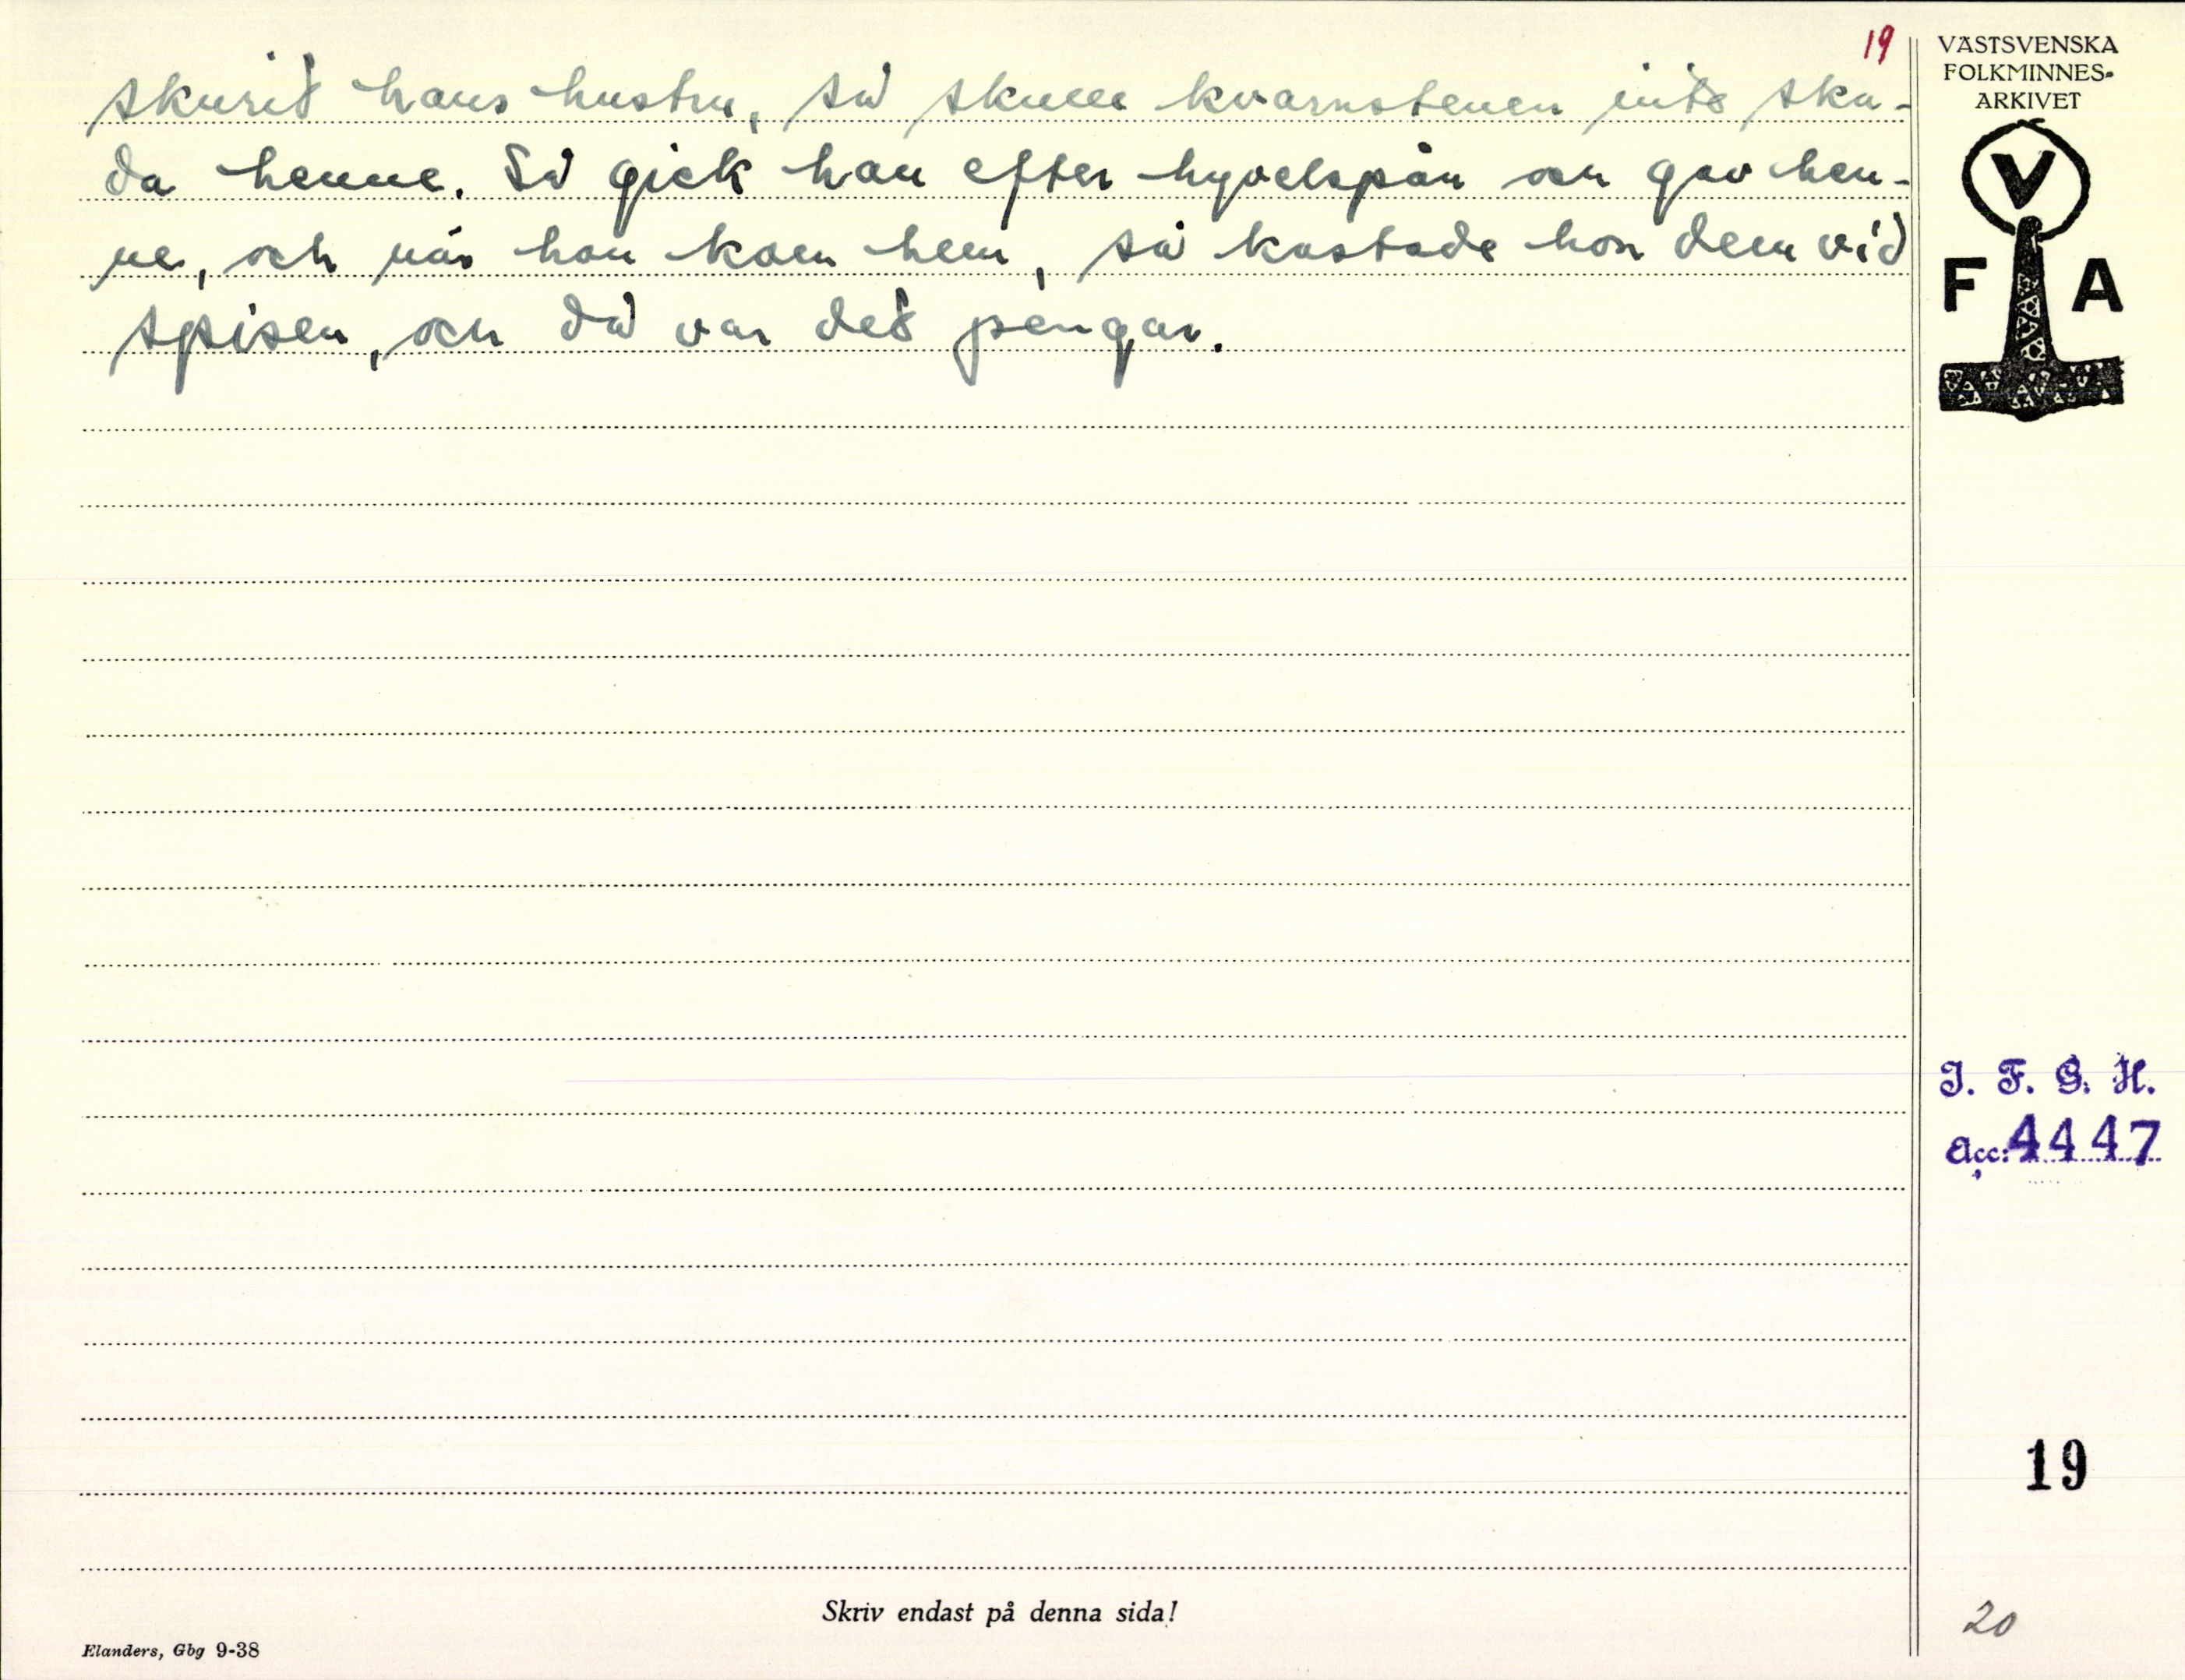 19
skurit hans hustru, så skulle kvarnstenen inte ska-
da henne. Så gick han efter hyvelspån och gav hen-
ne, och när hon kom hem, så kastade hon dem vid
spisen, och då var det pengar.
VÄSTSVENSKA
FOLKMINNES-
ARKIVET
V
F A
I. F. G. H.
Acc: 4447
19
20
Skriv endast på denna sida!
Elanders, Gbg 9-38